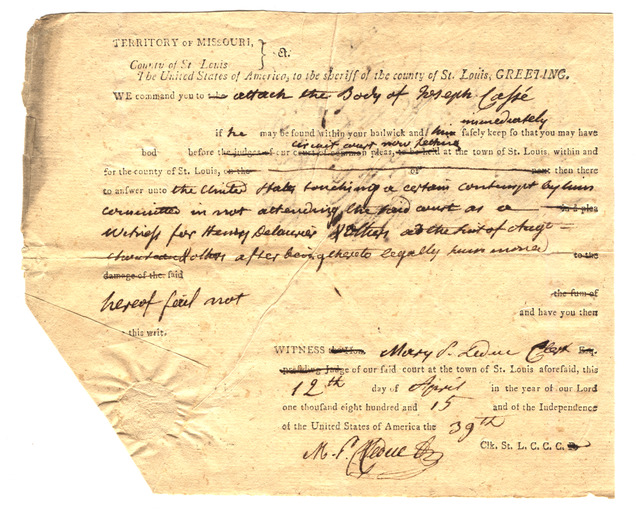 TERRITORY OF MISSOURI, } ss.
County of St Louis
The United States of America, to the sheriff of the county of St. Louis, GREETING.
WE command you to take attach the Body of Joseph Cassé
immediately
if he may be found within your bailwick and him safely keep so that you may have
circuit court now
bod before the judges of our court of common pleas, to be held at the town of St. Louis, within and
for the county of St. Louis, on the of next then there
to answer unto the United States touching a certain contempt by him
committed in not attending the said court as a plea
witness for Henry Delaurier & others at the suit of
& others after being thereto legally summoned to the
damage of the said
hereof fail not the sum of
and have you then
this writ.
WITNESS the Hon. Mary P. Leduc Clerk Esq.
presiding Judge of our said court at the town of St. Louis aforesaid, this
12th day of April in the year of our Lord
one thousand eight hundred and 15 and of the Independence
of the United States of America the 39th
M. P. Leduc Clk. St. L. C. C. C.